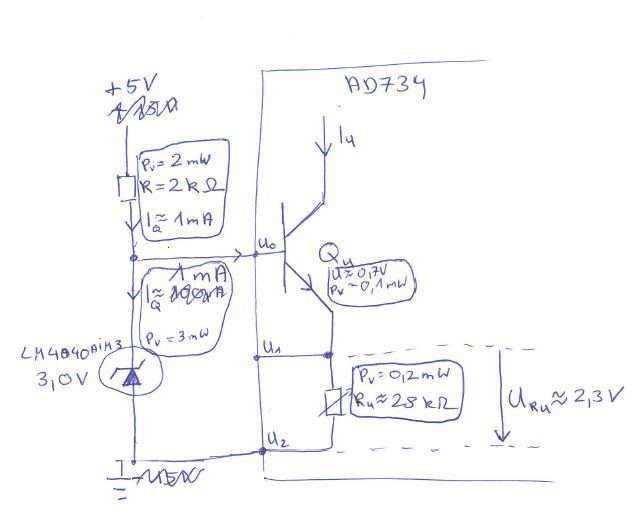 +5V
AD734
I4
Pv = 2 mW
R = 2 kΩ
IQ ≈ 1 mA
U0
Qu
U ≈ 0,7V
Pv ~ 0,1 mW
1 mA
IQ ≈
Pv = 3 mW
LM4040AIM3
3,0V
U1
Pv = 0,2 mW
Ru ≈ 28 kΩ
URu ≈ 2,3 V
U2